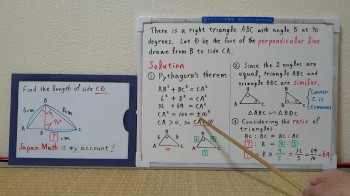 There is a right triangle ABC with angle B at 90
degrees. Let D be the foot of the perpendicular line
drawn from B to side CA.
Find the length of side CD.
B
6cm
8cm
A
D
C
?
Japan Math is my account!
Solution
① Pythagora's therem
AB² + BC² = CA²
6² + 8² = CA²
CA² = 100 = 10²
CA > 0, so CA = 10
② Since the 2 angles are
equal, triangle ABC and
triangle BDC are similar.
Corner C is common
△ABC ∽ △BDC
③ Considering the ratio of
triangles
DC : BC = BC : AC